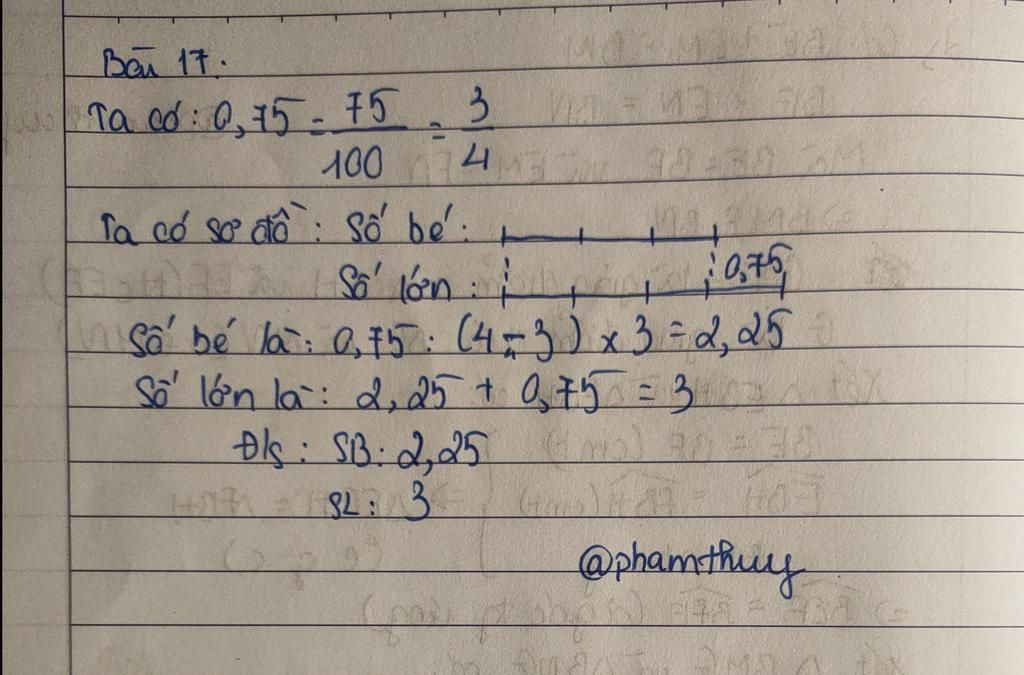 Bài 17:
Ta có: 0,75 = 75/100 = 3/4
Ta có sơ đồ: Số bé:
0,75
Số lớn:
Số bé là: 0,75 : (4 - 3) x 3 = 2,25
Số lớn là: 2,25 + 0,75 = 3
Đ/s: SB: 2,25
SL: 3
@phamthuy